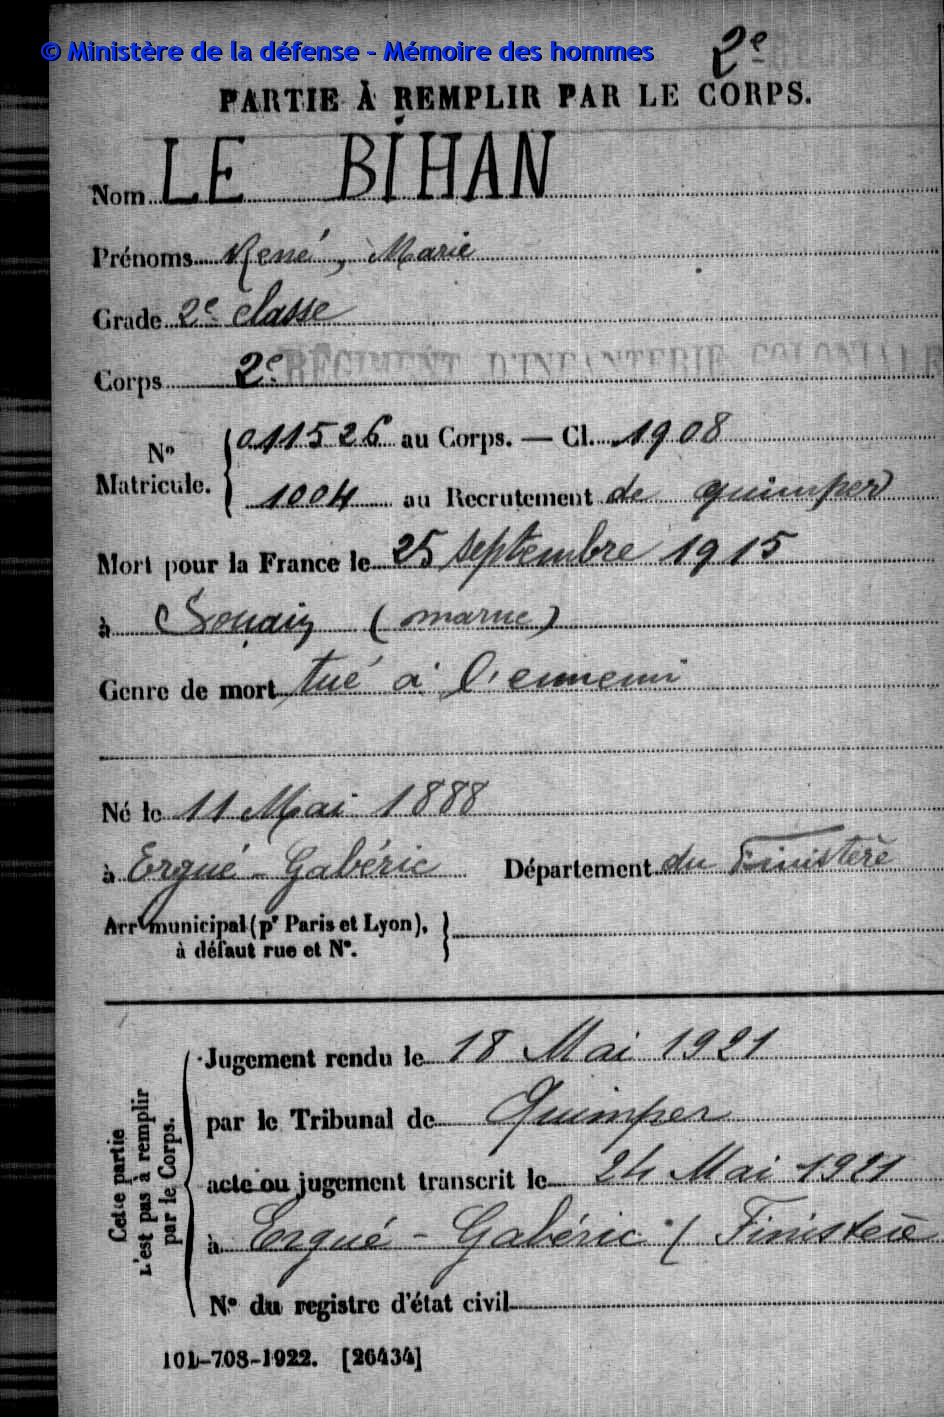 © Ministère de la défense - Mémoire des hommes
2e
PARTIE À REMPLIR PAR LE CORPS.
Nom LE BIHAN
Prénoms René, Marie
Grade 2e classe
Corps 2e RÉGIMENT D'INFANTERIE COLONIALE
No Matricule. { 011526 au Corps. — Cl. 1908
1004 au Recrutement de quimper
Mort pour la France le 25 septembre 1915
à Souain (marne)
Genre de mort tué à l'ennemi
Né le 11 Mai 1888
à Ergué-Gabéric Département du Finistère
Arrt municipal (pr Paris et Lyon), }
à défaut rue et No.
Cette partie
n'est pas à remplir
par le Corps.
Jugement rendu le 18 Mai 1921
par le Tribunal de Quimper
acte ou jugement transcrit le 24 Mai 1921
à Ergué-Gabéric (Finistère
No du registre d'état civil
101-708-1922. [26434]